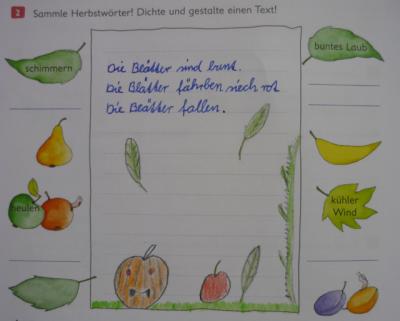 2 Sammle Herbstwörter! Dichte und gestalte einen Text!
schimmern
buntes Laub
Die Blätter sind bunt.
Die Blätter fährben siech rot
Die Beätter fallen.
heulen
kühler
Wind